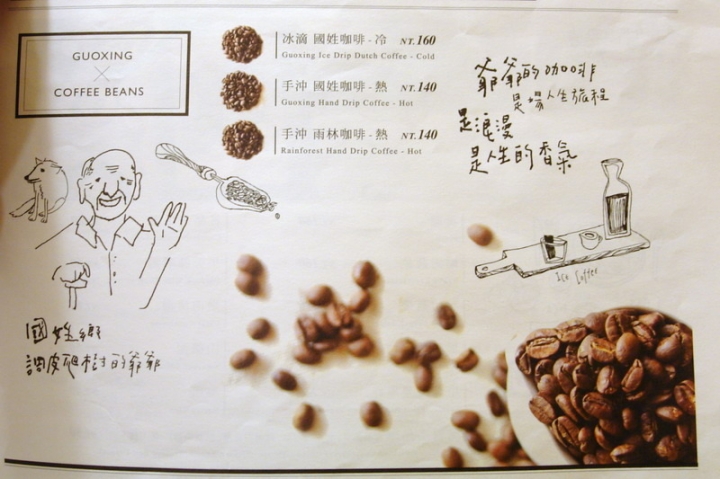 GUOXING
×
COFFEE BEANS
冰滴 國姓咖啡 - 冷 NT.160
Guoxing Ice Drip Dutch Coffee - Cold
手沖 國姓咖啡 - 熱 NT.140
Guoxing Hand Drip Coffee - Hot
手沖 雨林咖啡 - 熱 NT.140
Rainforest Hand Drip Coffee - Hot
爺爺的咖啡
是場人生旅程
是浪漫
是人生的香氣
Ice Coffee
國姓鄉
調皮爬樹的爺爺